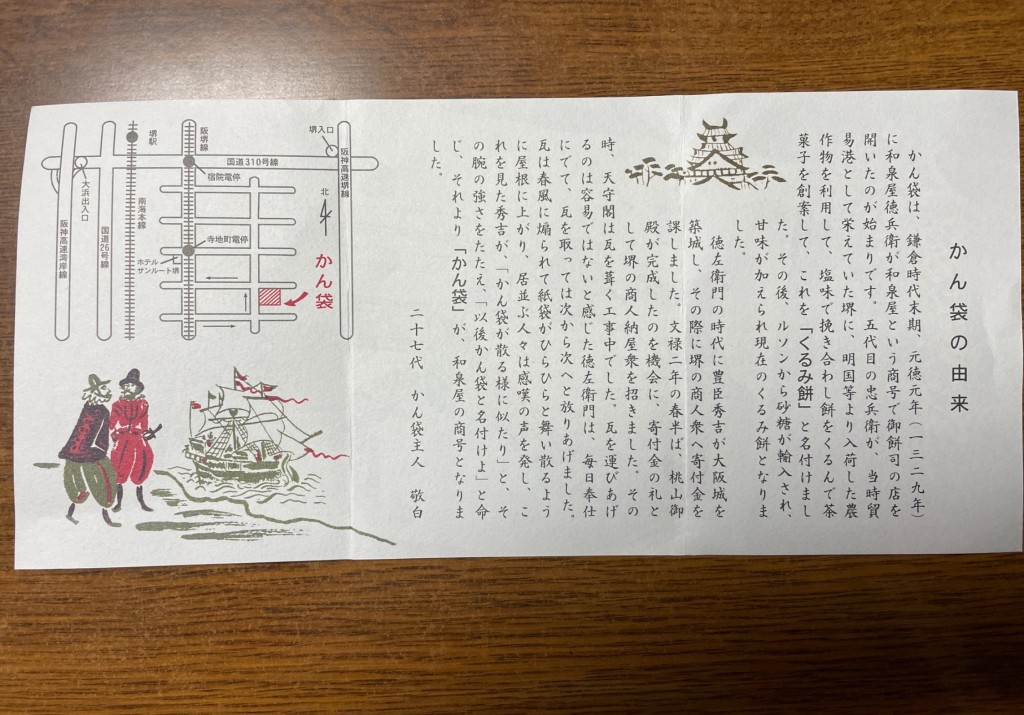 かん袋の由来
かん袋は、鎌倉時代末期、元徳元年(一三二九年)
に和泉屋徳兵衛が和泉屋という商号で御餅司の店を
開いたのが始まりです。五代目の忠兵衛が、当時貿
易港として栄えていた堺に、明国等より入荷した農
作物を利用して、塩味で挽き合わし餅をくるんで茶
菓子を創案して、これを「くるみ餅」と名付けまし
た。その後、ルソンから砂糖が輸入され、
甘味が加えられ現在のくるみ餅となりま
した。
徳左衛門の時代に豊臣秀吉が大阪城を
築城し、その際に堺の商人衆へ寄付金を
課しました。文禄二年の春半ば、桃山御
殿が完成したのを機会に、寄付金の礼と
して堺の商人納屋衆を招きました。その
時、天守閣は瓦を葺く工事中でした。瓦を運びあげ
るのは容易ではないと感じた徳左衛門は、毎日奉仕
にでて、瓦を取っては次から次へと放りあげました。
瓦は春風に煽られて紙袋がひらひらと舞い散るよう
に屋根に上がり、居並ぶ人々は感嘆の声を発し、こ
れを見た秀吉が、「かん袋が散る様に似たり」と、そ
の腕の強さをたたえ、「以後かん袋と名付けよ」と命
じ、それより「かん袋」が、和泉屋の商号となりま
した。
二十七代 かん袋主人 敬白
堺駅
阪堺線
堺入口
国道310号線
阪神高速堺線
宿院電停
北
大浜出入口
南海本線
国道26号線
阪神高速湾岸線
寺地町電停
ホテル
サンルート堺
かん袋